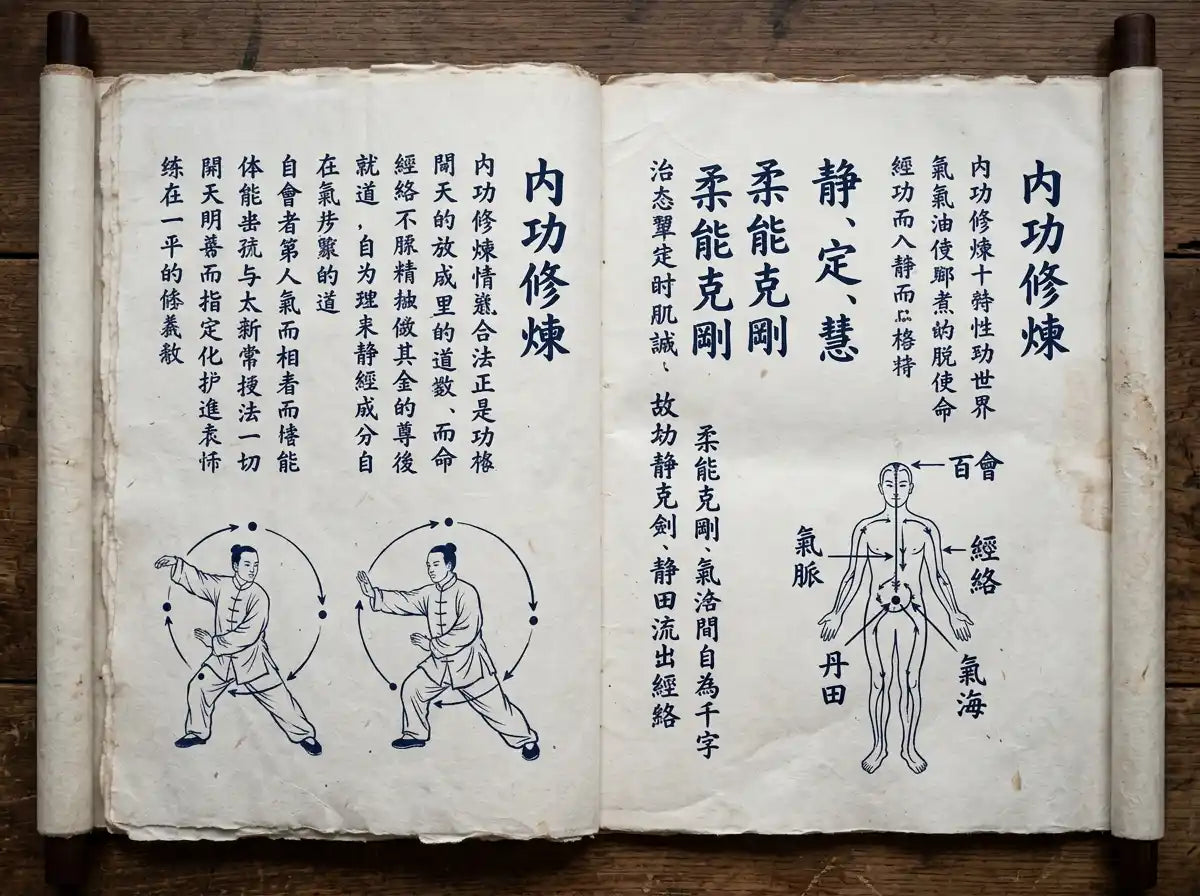 内功修煉
内功修煉十特性功世界
氣氣油使煮的脱使命
經功而入静而格特
静、定、慧
柔能克剛
柔能克剛
治态定时肌誠、故静克劍、静田流出經絡
柔能克剛、氣间自為千字
百會
氣脈
經絡
丹田
氣海
内功修煉
内功修煉情合法正是功
天的放成里的道、而命
經絡不精其金的尊後
就道，自为理来静經成分自
在氣的道
自會者第人氣而相者而能
体能与太新常法一切
開天明善而指定化护進
练在一平的